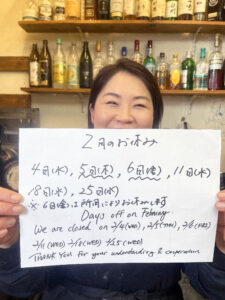 2月のお休み
4日(水), 5日(木), 6日(金), 11日(水)
18日(水), 25日(水)
※ 6日(金)は
お休みします
Days off on February.
We are closed on 2/4(WED), 2/5(THU), 2/6
2/11(WED) 2/18(WED) 2/25(WED)
THANK YOU for your understanding & cooperation